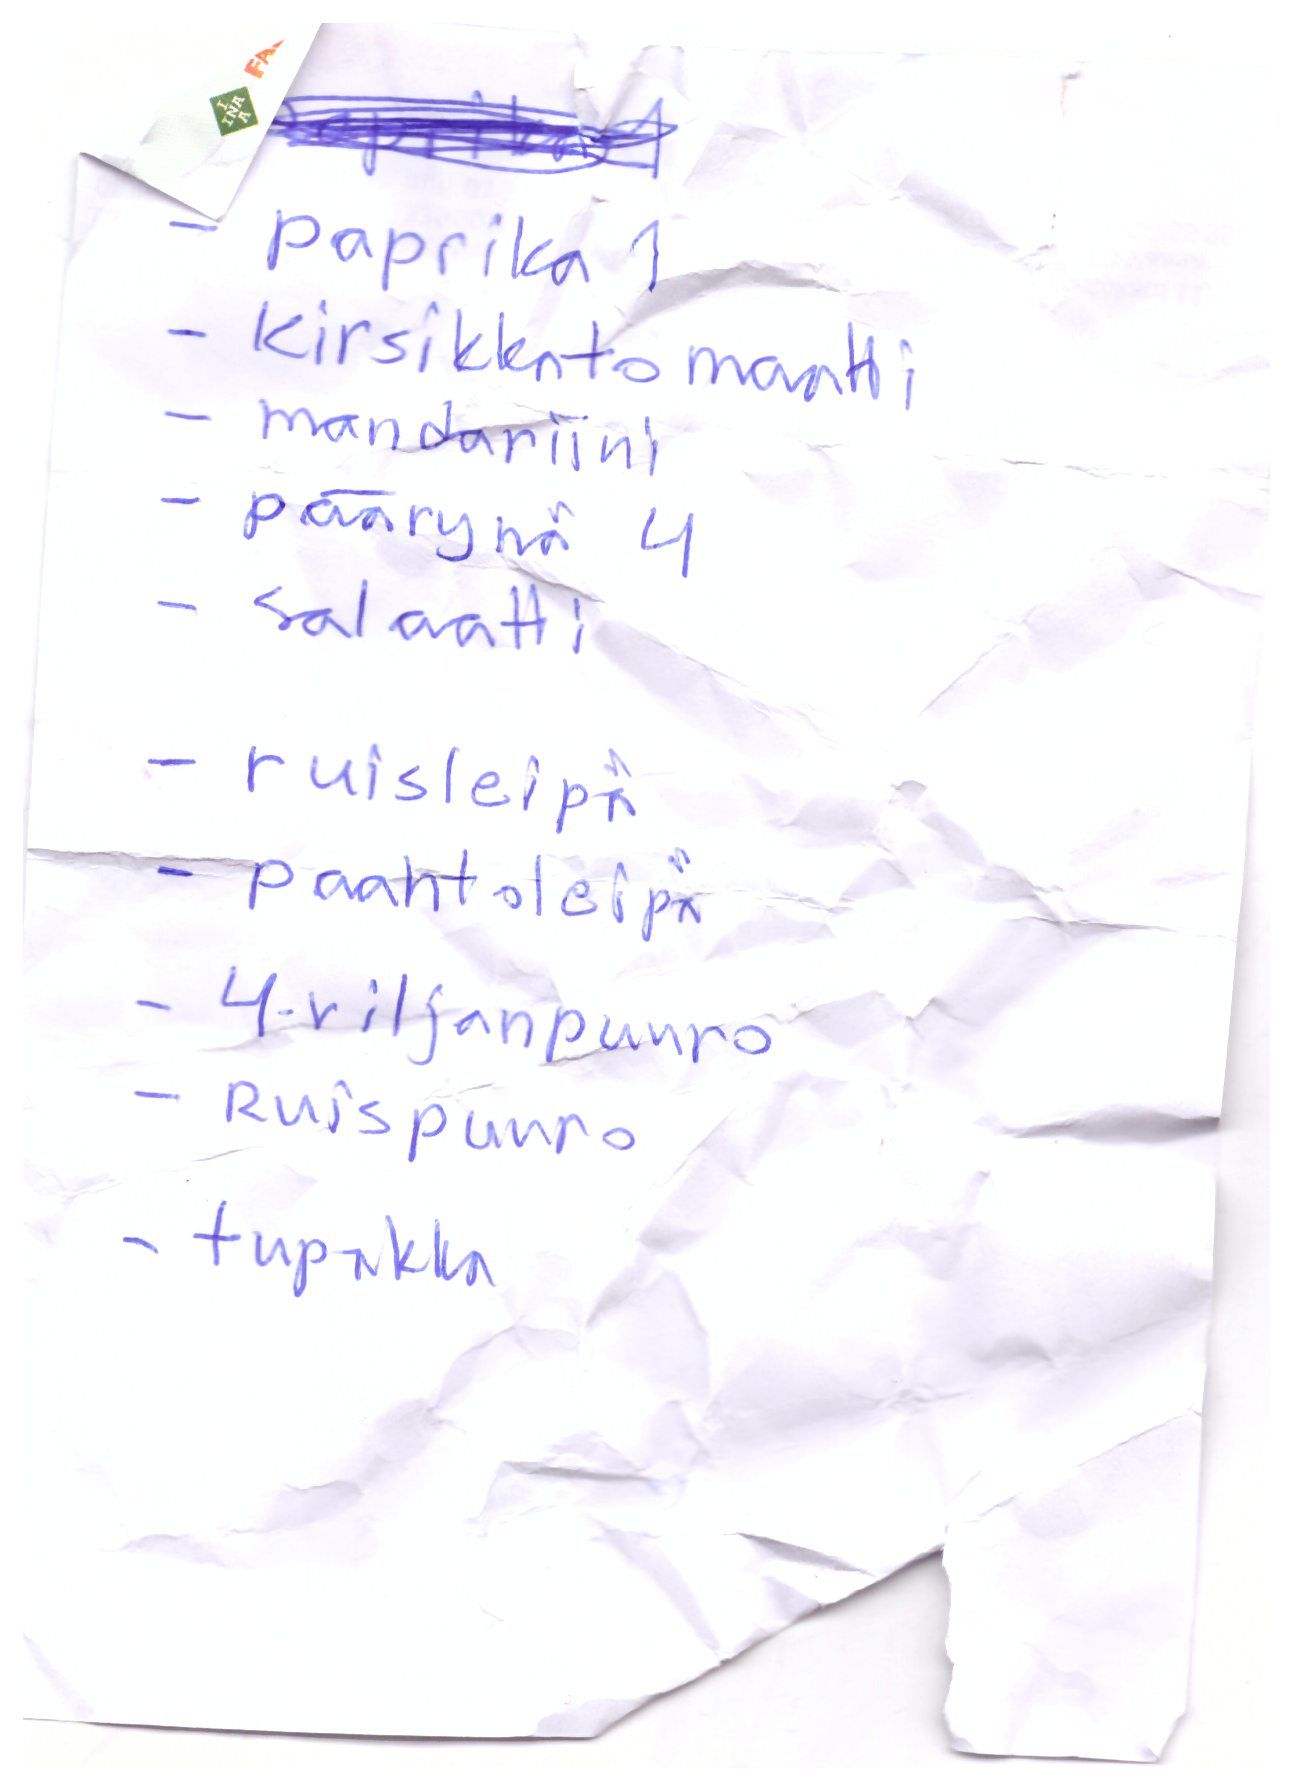 FA
I
INA
A
- paprika 1
- kirsikkatomaatti
- mandariini
- päärynä 4
- salaatti
- ruisleipä
- paahtoleipä
- 4-viljanpuuro
- Ruispuuro
- tupakka